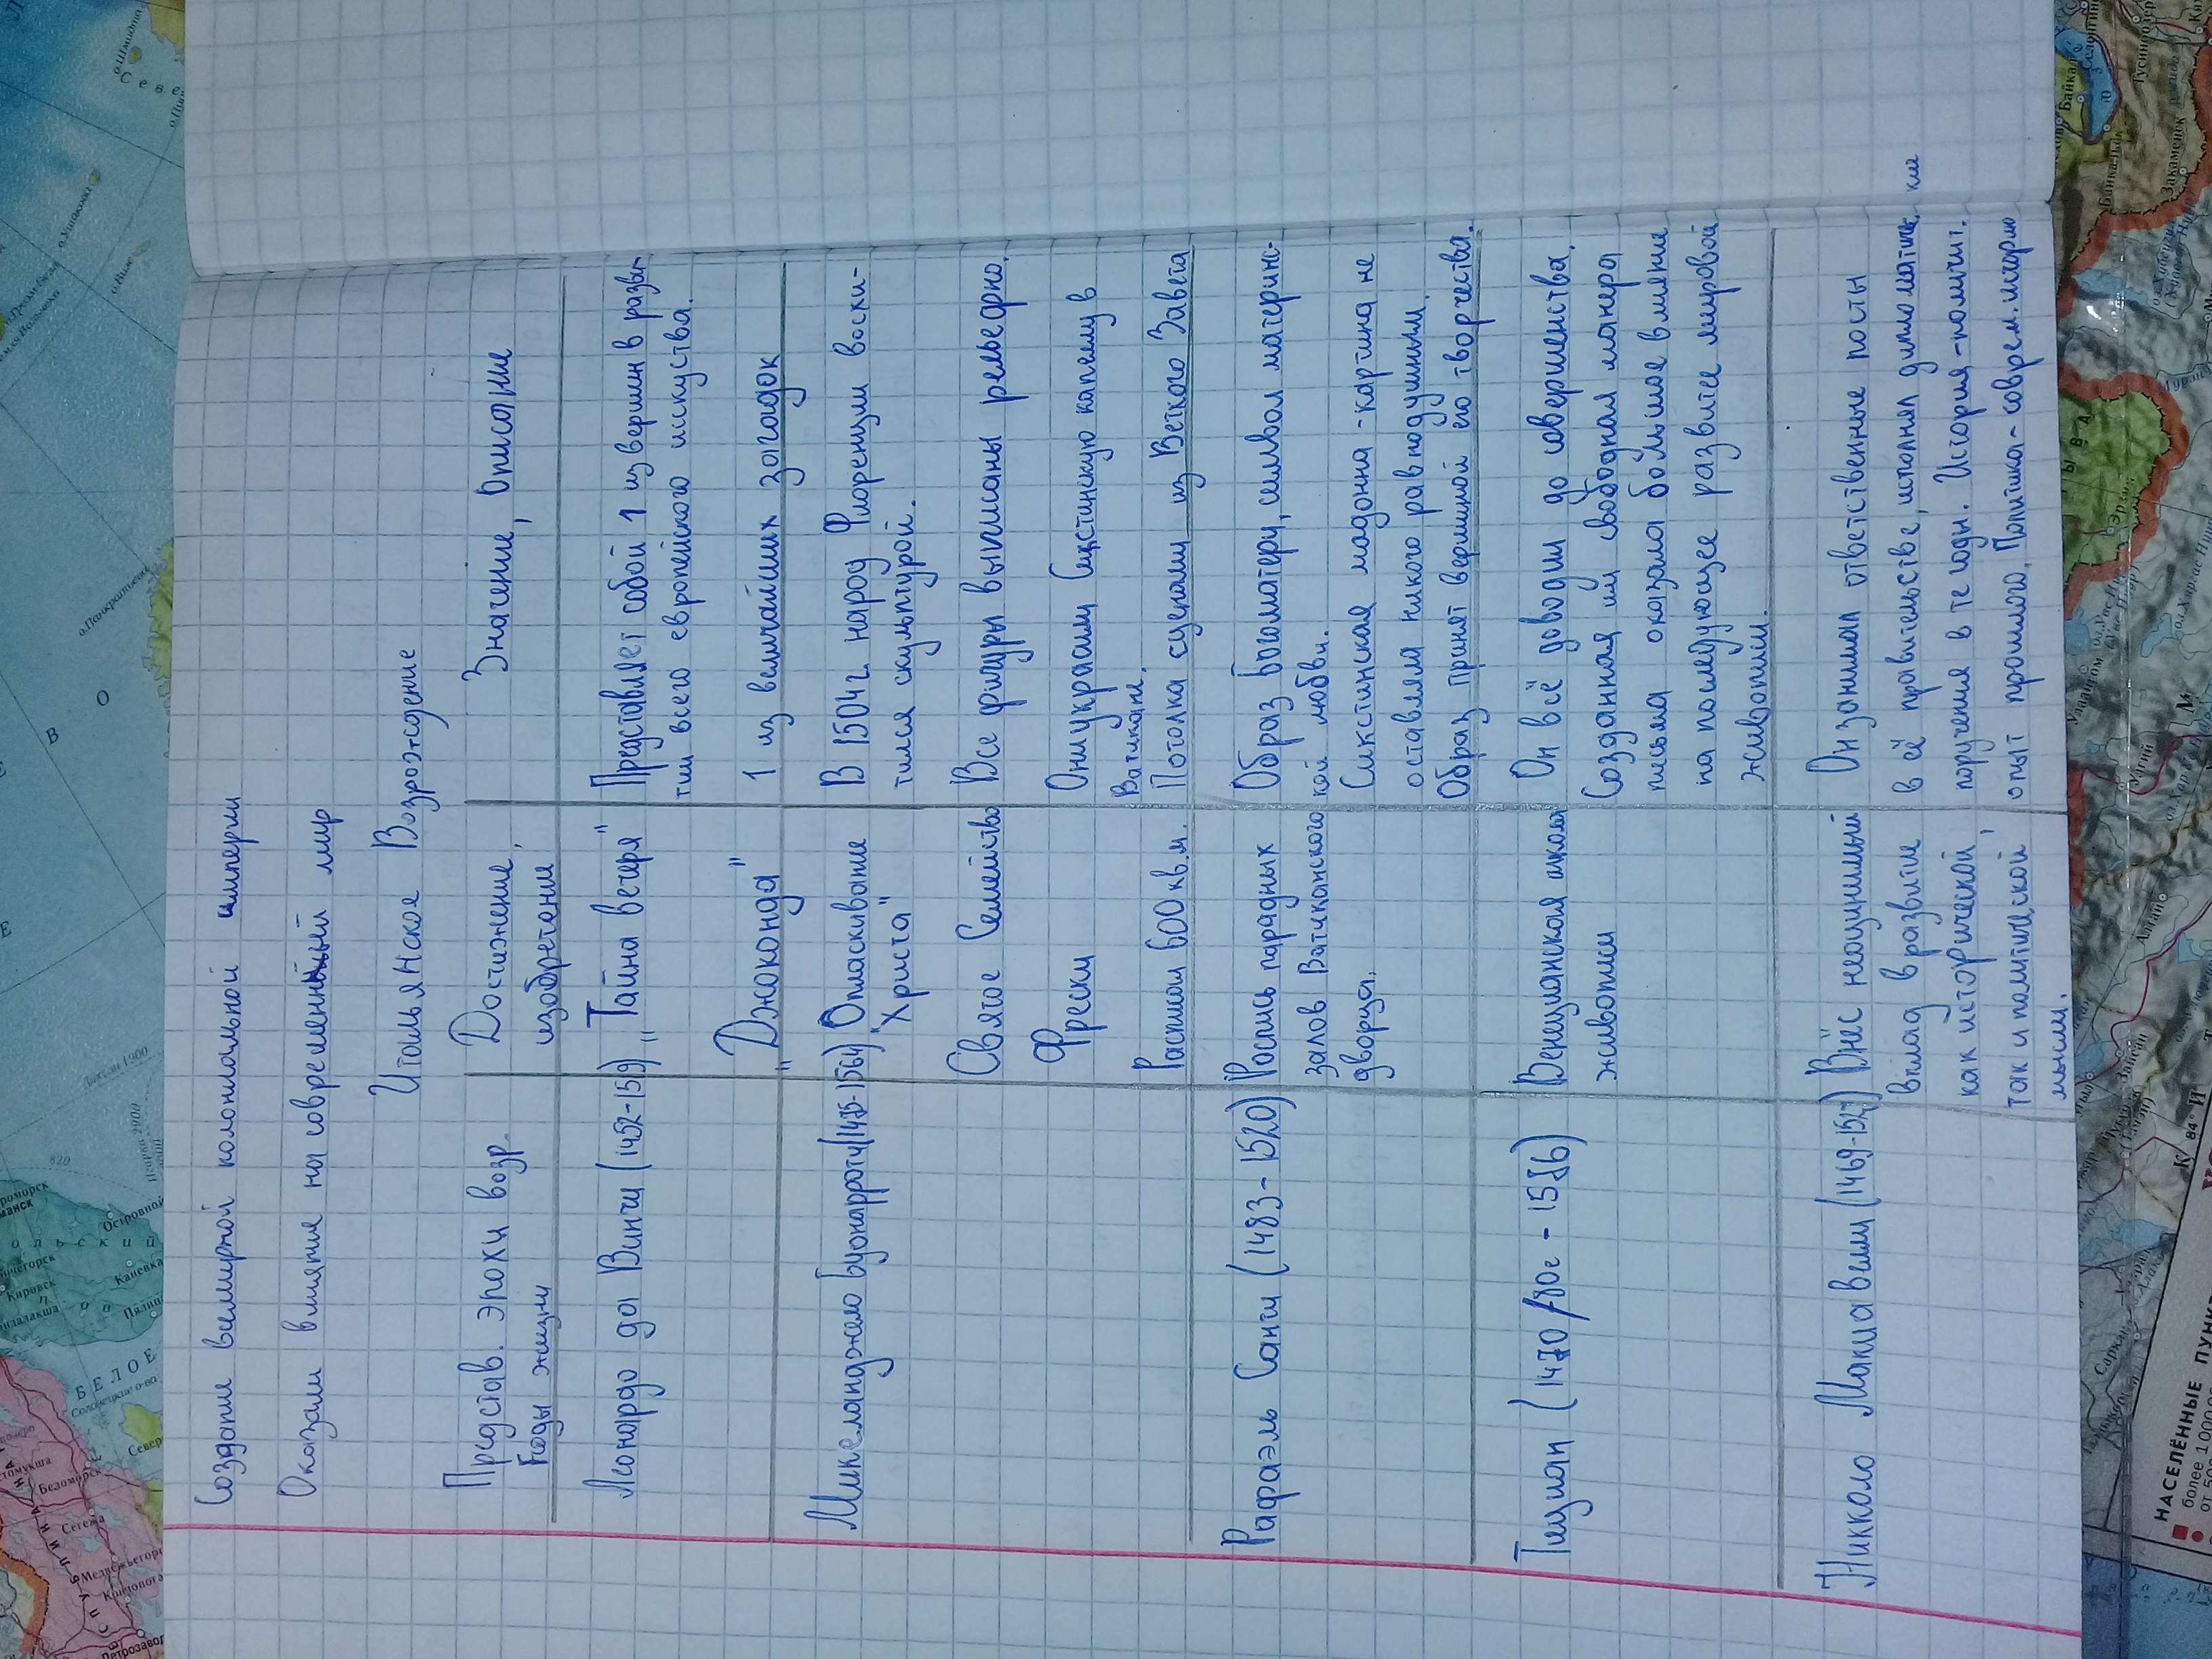 Создание всемирной колониальной империи
Оказали влияние на современный мир
Итальянское Возрождение
Представ. эпохи возр.
Годы жизни
Достижение,
изобретение
Значение, описание
Леонардо да Винчи (1452-1519)
„Тайна вечеря"
Представляет собой 1 из вершин в разви-
тии всего европейского искуства.
„Джоконда"
1 из величайших загадок
Микеланджело Буонарроти (1475-1564)
Оплакивание
"Христа"
В 1504 г. народ Флоренции восхи-
тился скульптурой.
Святое Семейство
Все фигуры выписаны рельефно.
Фрески
Они украсили Сикстинскую капеллу в
Ватикане.
Расписал 600 кв.м.
Потолка сценами из Ветхого Завета
Рафаэль Санти (1483-1520)
Роспись парадных
залов Ватиканского
дворца.
Образ Богоматери, символ материнс-
кой любви.
Сикстинская мадонна - картина не
оставляла никого равнодушным.
Образ принят вершиной его творчества.
Тициан (1470/80е - 1576)
Венецианская школа
живописи
Он всё доводил до совершенства.
Созданная им свободная манера
письма оказала большое влияние
на последующее развитие мировой
живописи.
Никколо Макиавелли (1469-1527)
Внёс неоценимый
вклад в развитие
как исторической,
так и политической
мысли.
Он занимал ответственные посты
в её правительстве, исполнял дипломатические
поручения в те годы. История - политит.
опыт прошлого, Политика - соврем. историю